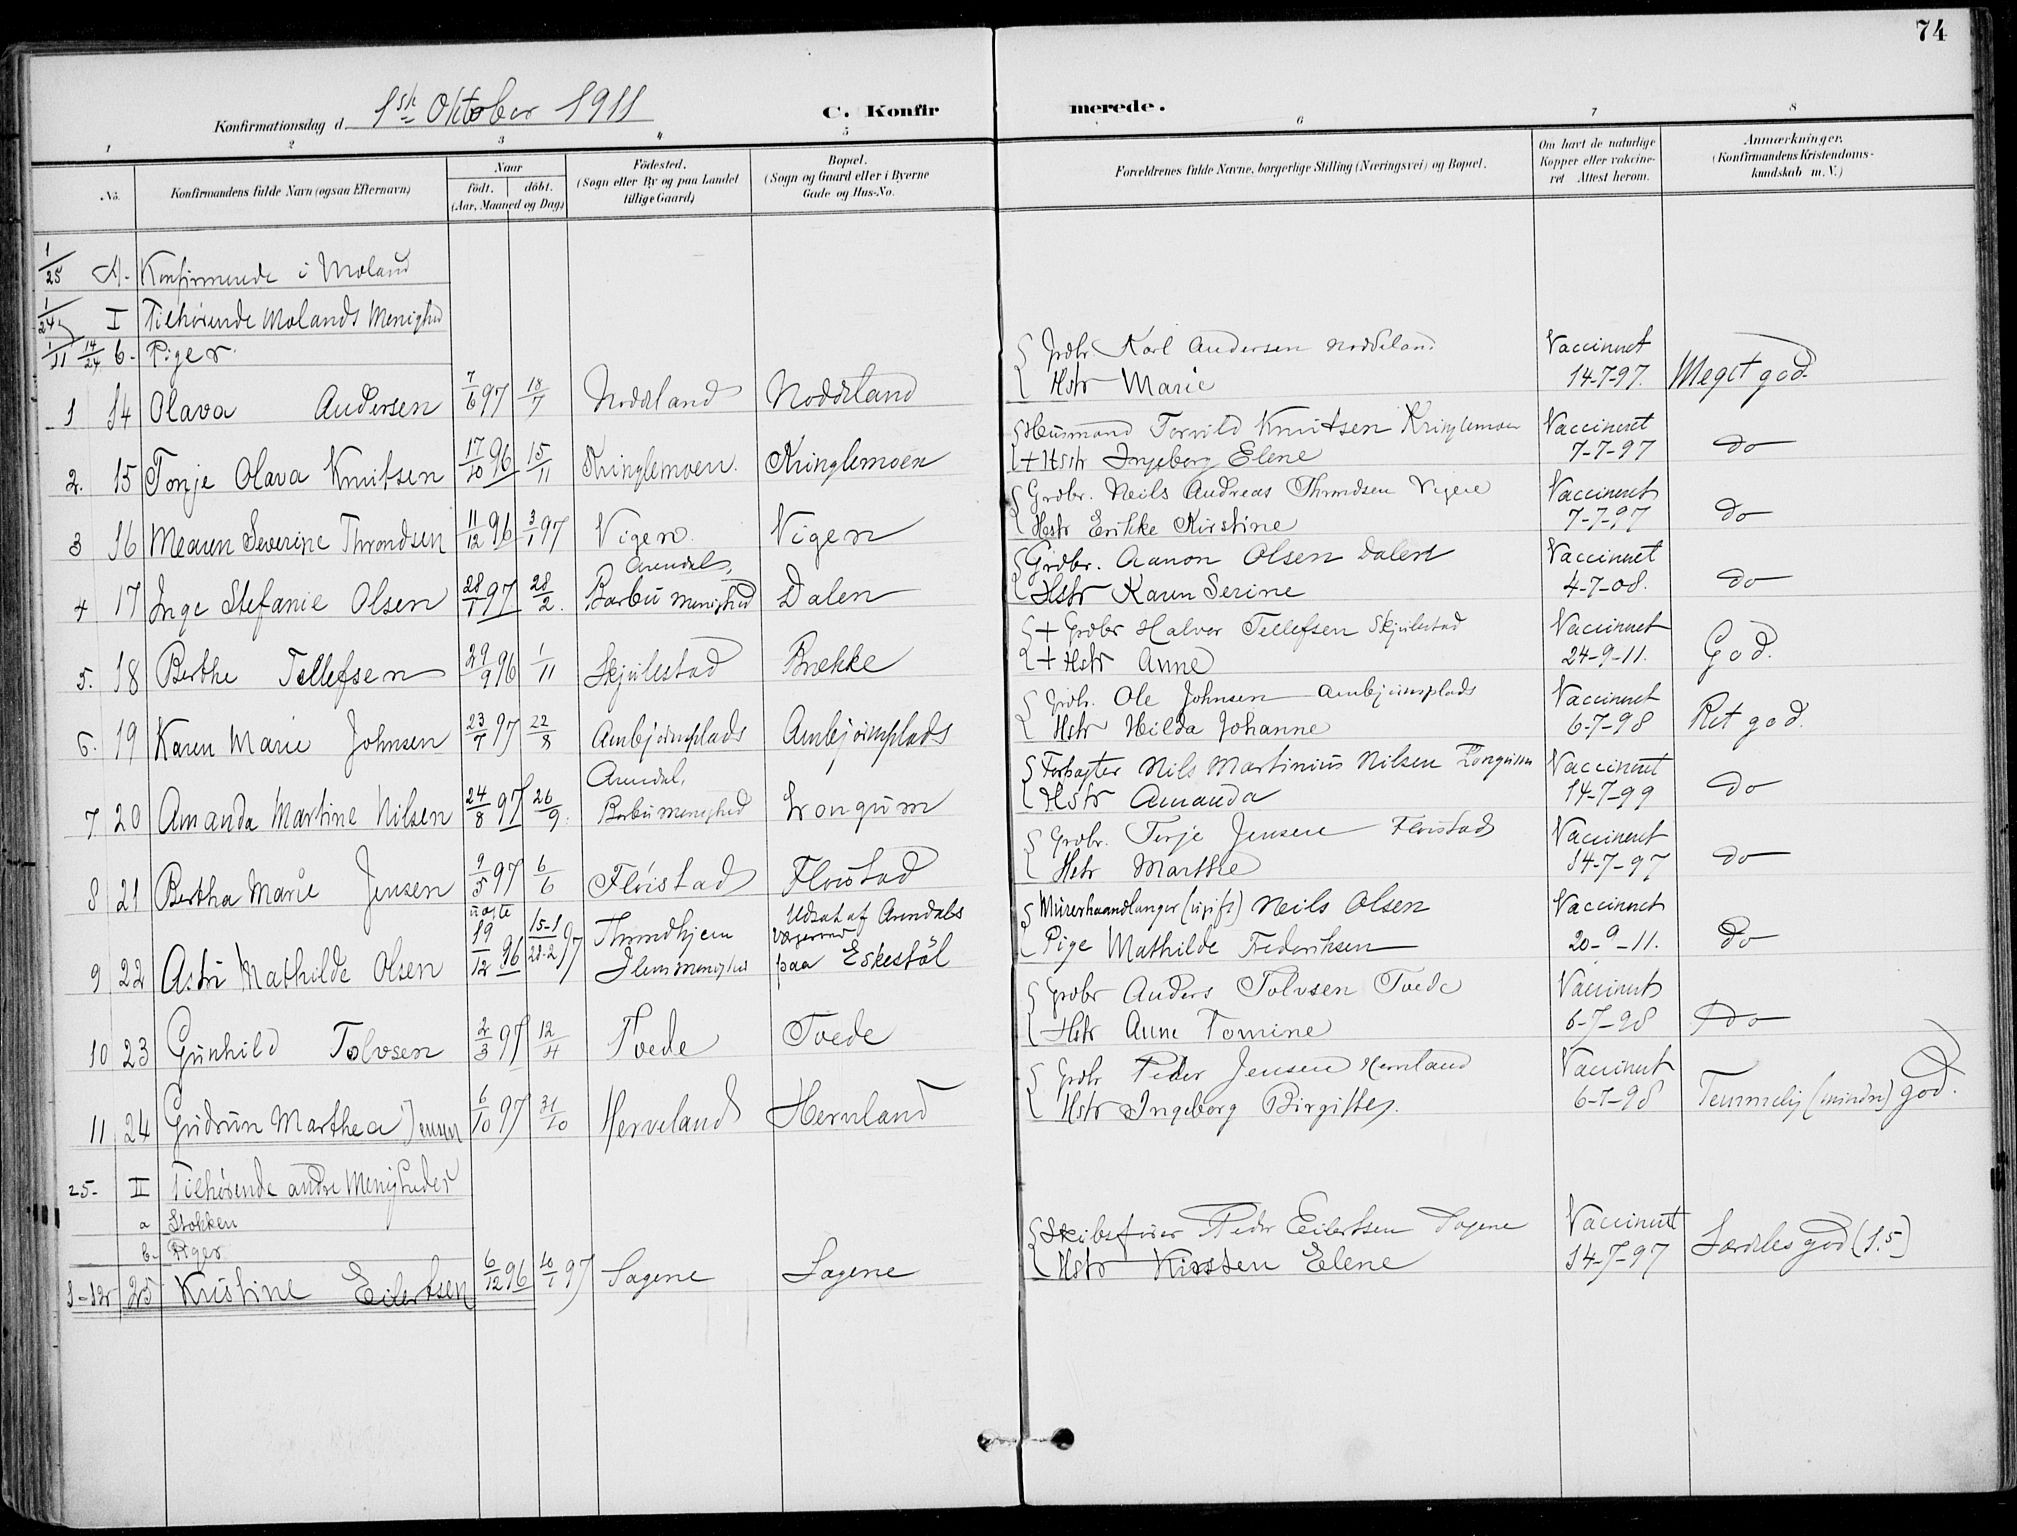 74
Konfirmationsdag d. 1ste Oktober 1911
C. Konfirmerede.
1 2 3 4 5 6 7 8
No.
Konfirmandens fulde Navn (ogsaa Efternavn)
Naar
født. døbt.
(Aar, Maaned og Dag)
Fødested.
(Sogn eller By og paa Landet
tillige Gaard)
Bopæl.
(Sogn og Gaard eller i Byerne
Gade og Hus-No.
Forældrenes fulde Navne, borgerlige Stilling (Næringsvei) og Bopæl.
Om havt de naturlige
Kopper eller vakcine-
ret Attest herom.
Anmærkninger.
(Konfirmandens Kristendoms-
kundskab m. V.)
1/25 A. Konfirmerede i Moland
1/24 I Tilhørende Molands Menighed
1/11 14/24 b. Piger
1 14 Olava Andersen 7/6 97 18/7 Noddeland Noddeland
{ Grdbr. Karl Andersen Noddeland
Hstr Marie
Vaccineret
14-7-97.
Meget god.
2. 15 Tonje Olava Knutsen 17/10 96 15/11 Kringlemoen. Kringlemoen
{ Husmand Torvild Knutsen Kringlemoen
+ Hstr Ingeborg Elene
Vaccineret
7-7-97
do
3 16 Mearen Severine Throndsen 11/12 96 3/1 97 Vigen. Vigen
{ Grdbr. Neils Andreas Throndsen Vigen
Hstr Erikke Kirstine
Vaccineret
7-7-97
do
4 17 Inge Stefanie Olsen 28/1 97 28/2. Arendal, Barbu menighed Dalen
{ Grdbr. Aanon Olsen Dalen
Hstr Karen Serine
Vaccineret
4-7-08.
do
5. 18 Berthe Tellefsen 29/9 96 1/11 Skjulestad Brække
{ + Grdbr Halvor Tellefsen Skjulestad
+ Hstr Anne
Vaccineret
24-9-11.
God.
6. 19 Karen Marie Johnsen 23/7 97 22/8 Ambjørnsplads Ambjørnsplads
{ Grdbr. Ole Johnsen Ambjørnsplads
Hstr Hilda Johanne
Vaccineret
6-7-98
Ret god.
7 20 Amanda Martine Nilsen 24/8 97 26/9. Arendal, Barbu menighed Longum
{ Forpagter Nils Martinius Nilsen Longum
Hstr Amanda
Vaccineret
14-7-99
do
8 21 Bertha Marie Jensen 9/5 97 6/6 Fløistad Fløistad
{ Grdbr. Terje Jensen Fløistad
Hstr Marthe
Vaccineret
14-7-97
do
9 22 Astri Mathilde Olsen uægte 19/12 96 15-1 28-2 97 Throndhjem Ilens menighed Udsat af Arendals Værgeraad paa Eskestøl
{ Murerhaandlanger (ugift) Neils Olsen
Pige Mathilde Frederiksen
Vaccineret
20-9-11.
do
10 23 Gunhild Tolvsen 2/3 97 12/4 Tvede Tvede
{ Grdbr Anders Tolvsen Tvede
Hstr Anne Tomine
Vaccineret
6-7-98
do
11 24 Gudrun Marthea Jensen 6/10 97 31/10 Herveland Hervland
{ Grdbr Peder Jensen Hervland
Hstr Ingeborg Birgitte.
Vaccineret
6-7-98
Temmelig (mindre) god.
25- II Tilhørende andre Menigheder
a Stokken
b. Piger
1-12r 25 Kristine Eilertsen 6/12 96 10/1 97 Sagene Sagene
{ Skibsfører Peder Eilertsen Sagene
Hstr Kirsten Elene
Vaccineret
14-7-97
Særdeles god (1.5)